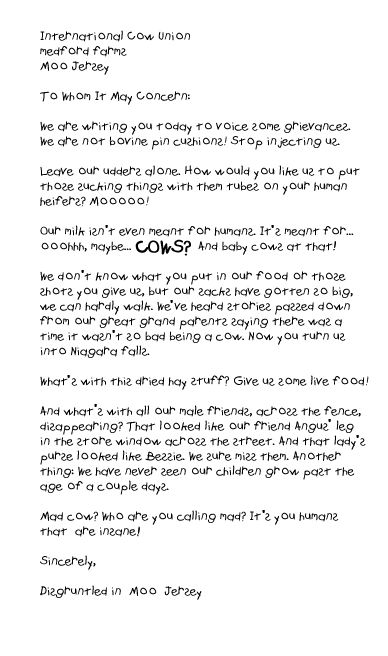 International Cow Union
medford farms
Moo Jersey
To Whom It May Concern:
We are writing you today to voice some grievances.
We are not bovine pin cushions! Stop injecting us.
Leave our udders alone. How would you like us to put
those sucking things with them tubes on your human
heifers? Mooooo!
Our milk isn't even meant for humans. It's meant for...
ooohhh, maybe... COWS? And baby cows at that!
We don't know what you put in our food or those
shots you give us, but our sacks have gotten so big,
we can hardly walk. We've heard stories passed down
from our great grand parents saying there was a
time it wasn't so bad being a cow. Now you turn us
into Niagara falls.
What's with this dried hay stuff? Give us some live food!
And what's with all our male friends, across the fence,
disappearing? That looked like our friend Angus' leg
in the store window across the street. And that lady's
purse looked like Bessie. We sure miss them. Another
thing: We have never seen our children grow past the
age of a couple days.
Mad cow? Who are you calling mad? It's you humans
that are insane!
Sincerely,
Disgruntled in Moo Jersey